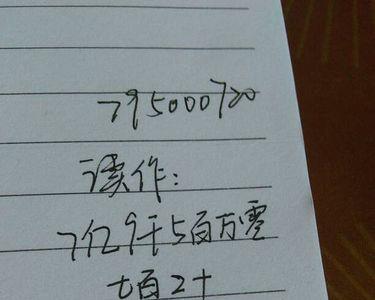 795000720
读作：
7亿9千5百万零
七百2十